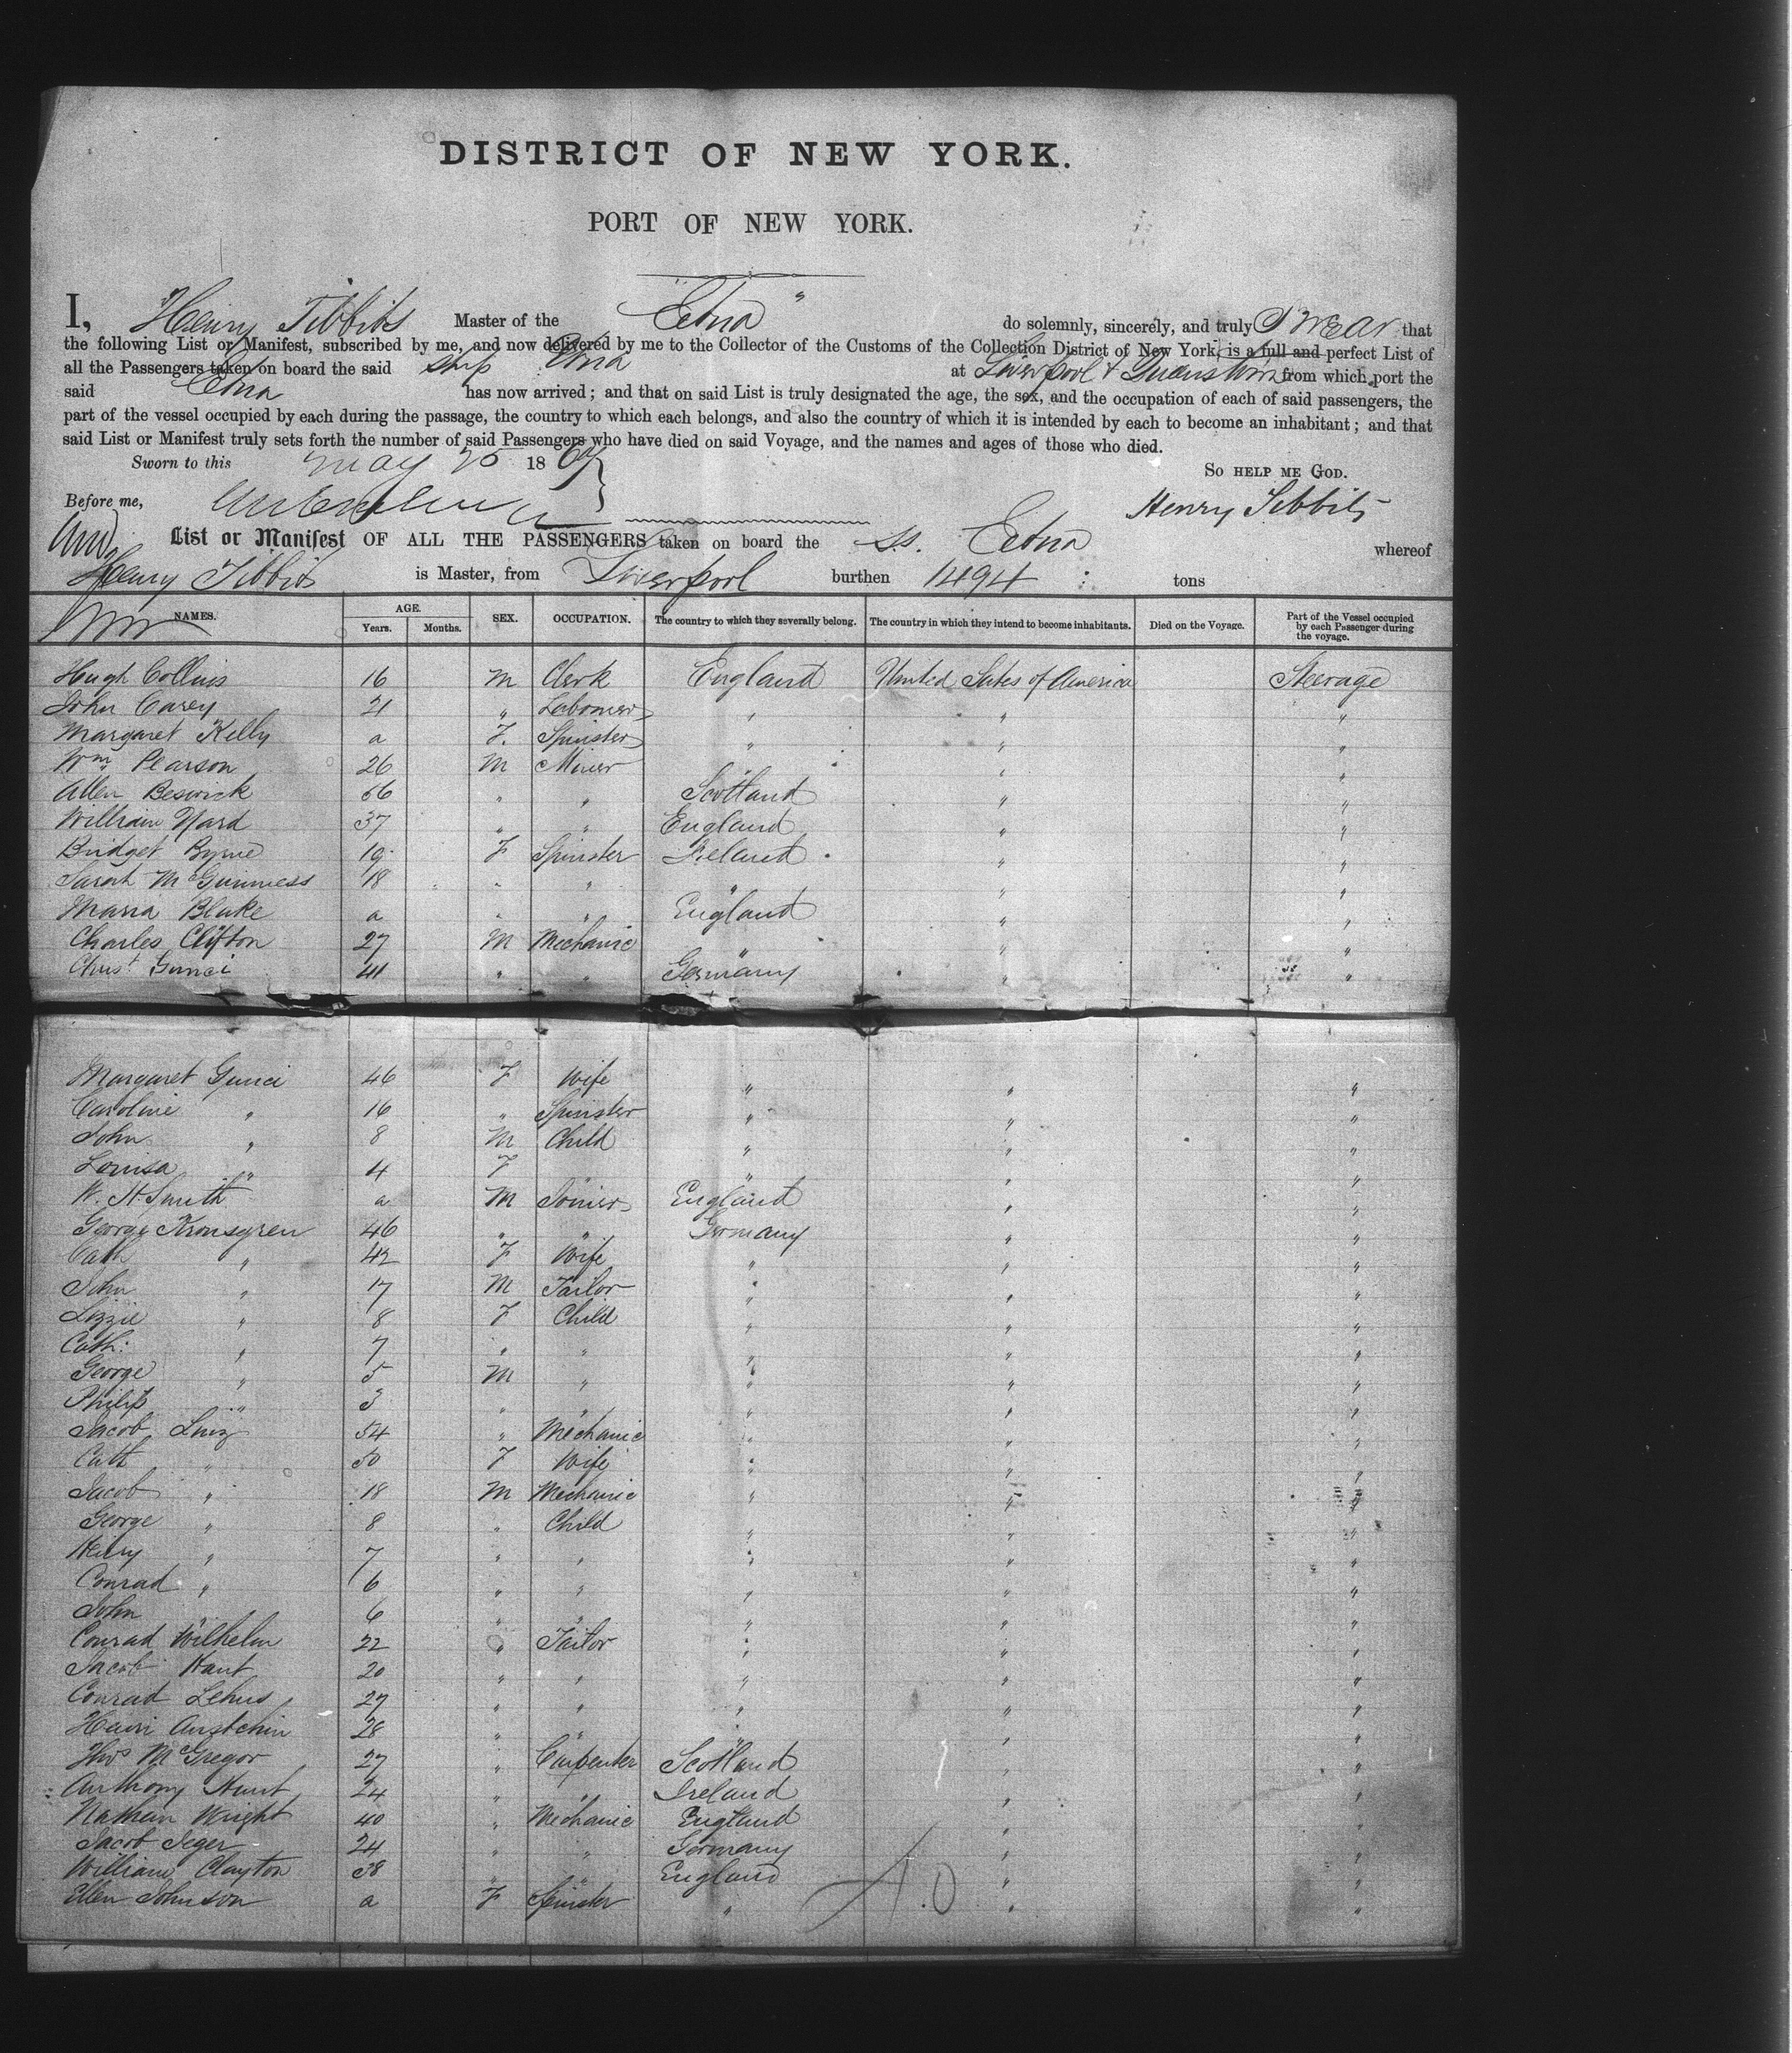 DISTRICT OF NEW YORK.
PORT OF NEW YORK.
I, Henry Tibbits Master of the "Etna" do solemnly, sincerely, and truly Swear that
the following List or Manifest, subscribed by me, and now delivered by me to the Collector of the Customs of the Collection District of New York, is a full and perfect List of
all the Passengers taken on board the said ship Etna at Liverpool & Queenstown from which port the
said Etna has now arrived; and that on said List is truly designated the age, the sex, and the occupation of each of said passengers, the
part of the vessel occupied by each during the passage, the country to which each belongs, and also the country of which it is intended by each to become an inhabitant; and that
said List or Manifest truly sets forth the number of said Passengers who have died on said Voyage, and the names and ages of those who died.
Sworn to this May 25 18 So HELP ME GOD.
Before me, Henry Tibbits
List or Manifest OF ALL THE PASSENGERS taken on board the S.S. Etna whereof
Henry Tibbits is Master, from Liverpool burthen 1494 tons
NAMES. AGE. Years. Months. SEX. OCCUPATION. The country to which they severally belong. The country in which they intend to become inhabitants. Died on the Voyage. Part of the Vessel occupied by each Passenger during the voyage.
Hugh Collins 16 M Clerk England United States of America Steerage
John Carey 21 " Labourer " " "
Margaret Kelly a F. Spinster " " "
Wm Pearson 26 M Miner " " "
Allen Beswick 56 " " Scotland " "
William Ward 37 " " England " "
Bridget Byrne 19 F Spinster Ireland " "
Sarah McGuinness 18 " " " " "
Maria Blake a " " England " "
Charles Clifton 27 M Mechanic " " "
Christ Gunci 41 " " Germany " "
Margaret Gunci 46 F Wife " " "
Caroline " 16 " Spinster " " "
John " 8 M Child " " "
Louisa " 4 F " " " "
W. H. Smith a M Joiner England " "
George Kronsgren 46 " " Germany " "
Cath " 42 F Wife " " "
John " 17 M Tailor " " "
Lizzie " 8 F Child " " "
Cath: " 7 " " " " "
George " 5 M " " " "
Philip " 3 " " " " "
Jacob 54 " Mechanic " " "
Cath " 50 F Wife " " "
Jacob " 18 M Mechanic " " "
George " 8 " Child " " "
Henry " 7 " " " " "
Conrad " 6 " " " " "
John " 6 " " " " "
Conrad Wilhelm 22 " Tailor " " "
Jacob 20 " " " " "
Conrad Lehus 27 " " " " "
28 " " " " "
Thos McGregor 27 " Carpenter Scotland " "
Anthony Hunt 24 " " Ireland " "
Nathan Wright 40 " Mechanic England " "
Jacob Jeger 24 " " Germany " "
William Clayton 38 " " England " "
Ellen Johnson a F Spinster " " "
40